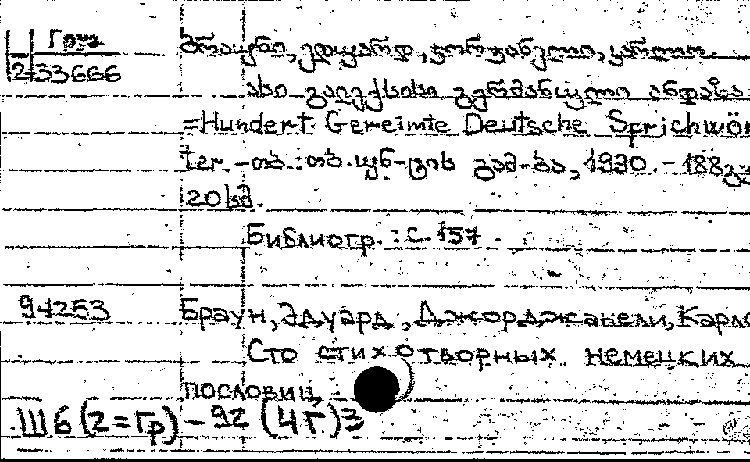 Груз
2 33666
ბრაუნი, ედუარდ, ჯორჯანელი, კარლო.
ასი გალექსილი გერმანული ანდაზა
=Hundert Gereimte Deutsche Sprichwör
ter. -თბ.: თბ. უნ-ტის გამ-ბა, 1990. - 188გვ
20სმ.
Библиогр.: с. 157.
94253 Браун, Эдуард, Джорджанели, Карло
Сто стихотворных немецких
пословиц.
Ш6(2=Гр)-92 (4Г)3